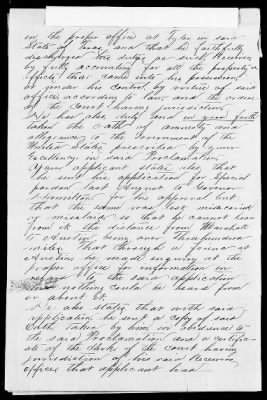 in the proper office at Tyler in said
State of Texas and that he faithfully
discharged the duties as such Receiver
by fully accounting for all the property &
effects that came into his possession
or under his control by virtue of said
office according to law and the orders
of the Court having jurisdiction.
He has also duly and in good faith
taken the Oath of amnesty and
allegiance to the Government of the
United States prescribed by your
Excellency in said Proclamation.
Your applicant states also that
he sent his application for Special
pardon last August to Governor
Hamilton for his approval but
that the same was lost miscarried
or mislaid so that he cannot hear
from it the distance from Marshall
to Austin being over three hundred
miles that through a friend at
Austin he made enquiry at the
proper office for information in
regard to the said application
and nothing could be heard from
or about it.
He also states that with said
application he sent a copy of said
Oath taken by him in obedience to
the said Proclamation and a certific-
ate of the Clerk of the Court having
jurisdiction of his said Receivers
office that applicant had